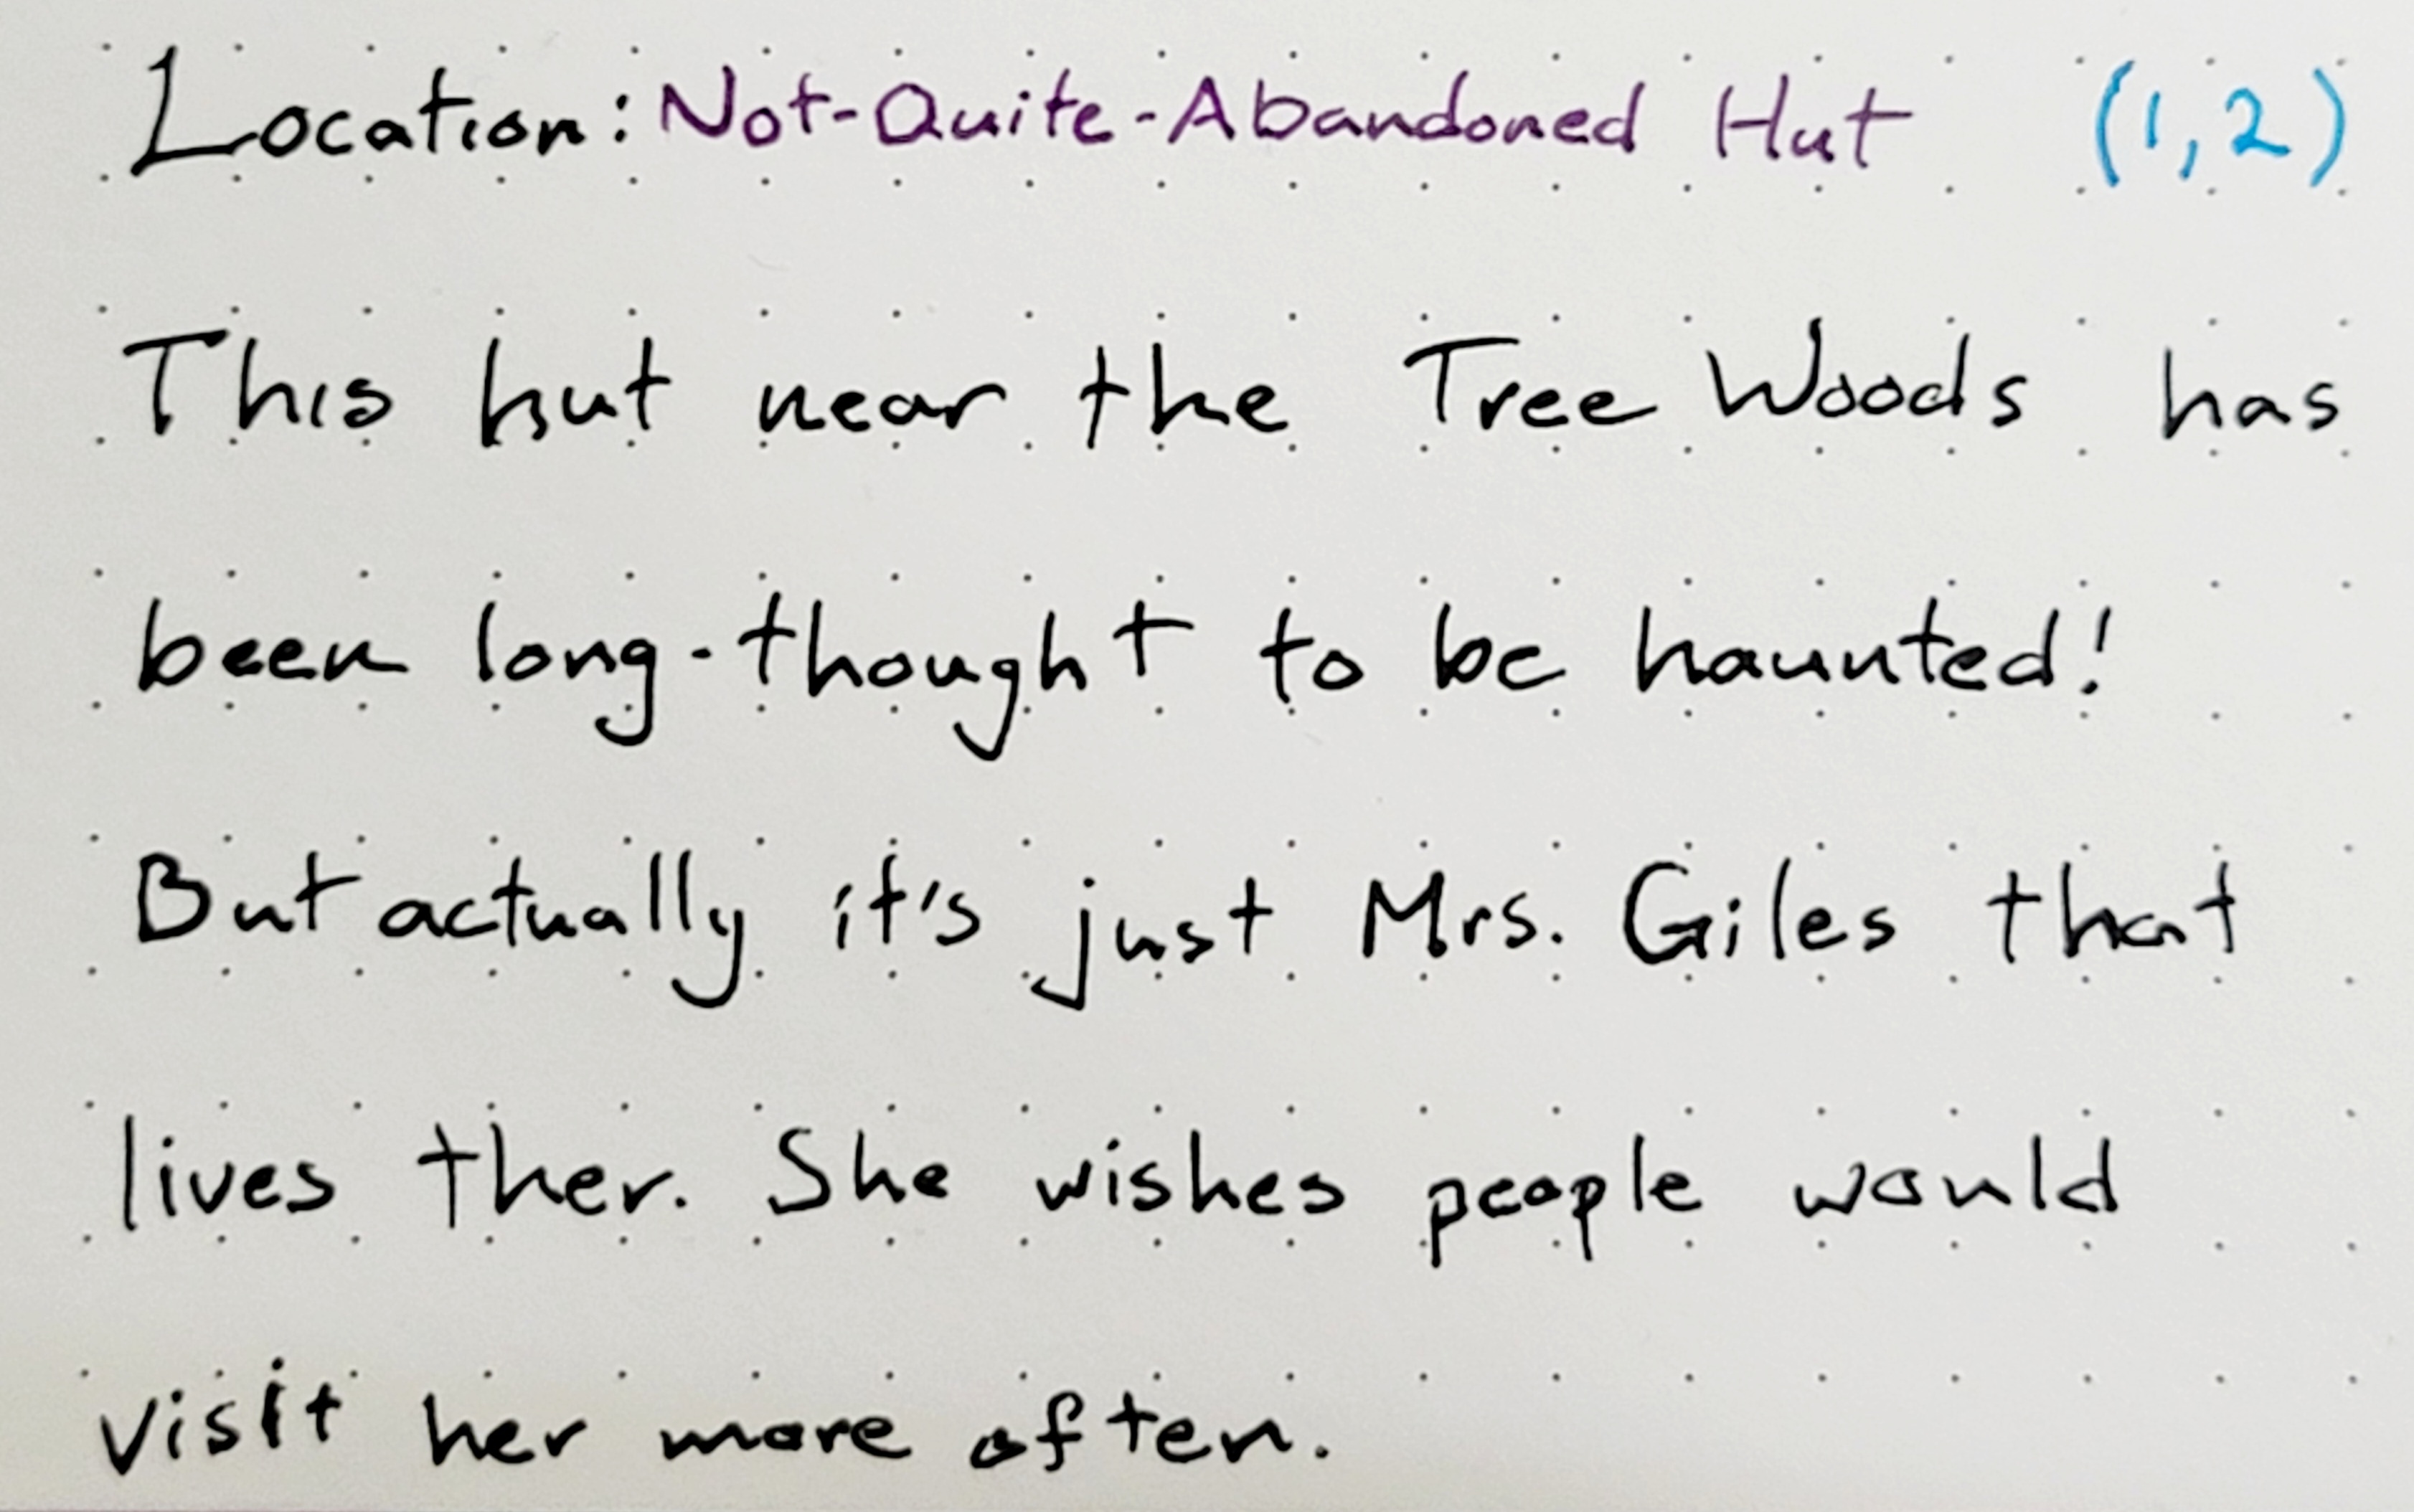 Location: Not-Quite-Abandoned Hut (1,2)
This hut near the Tree Woods has
been long-thought to be haunted!
But actually it's just Mrs. Giles that
lives ther. She wishes people would
visit her more often.